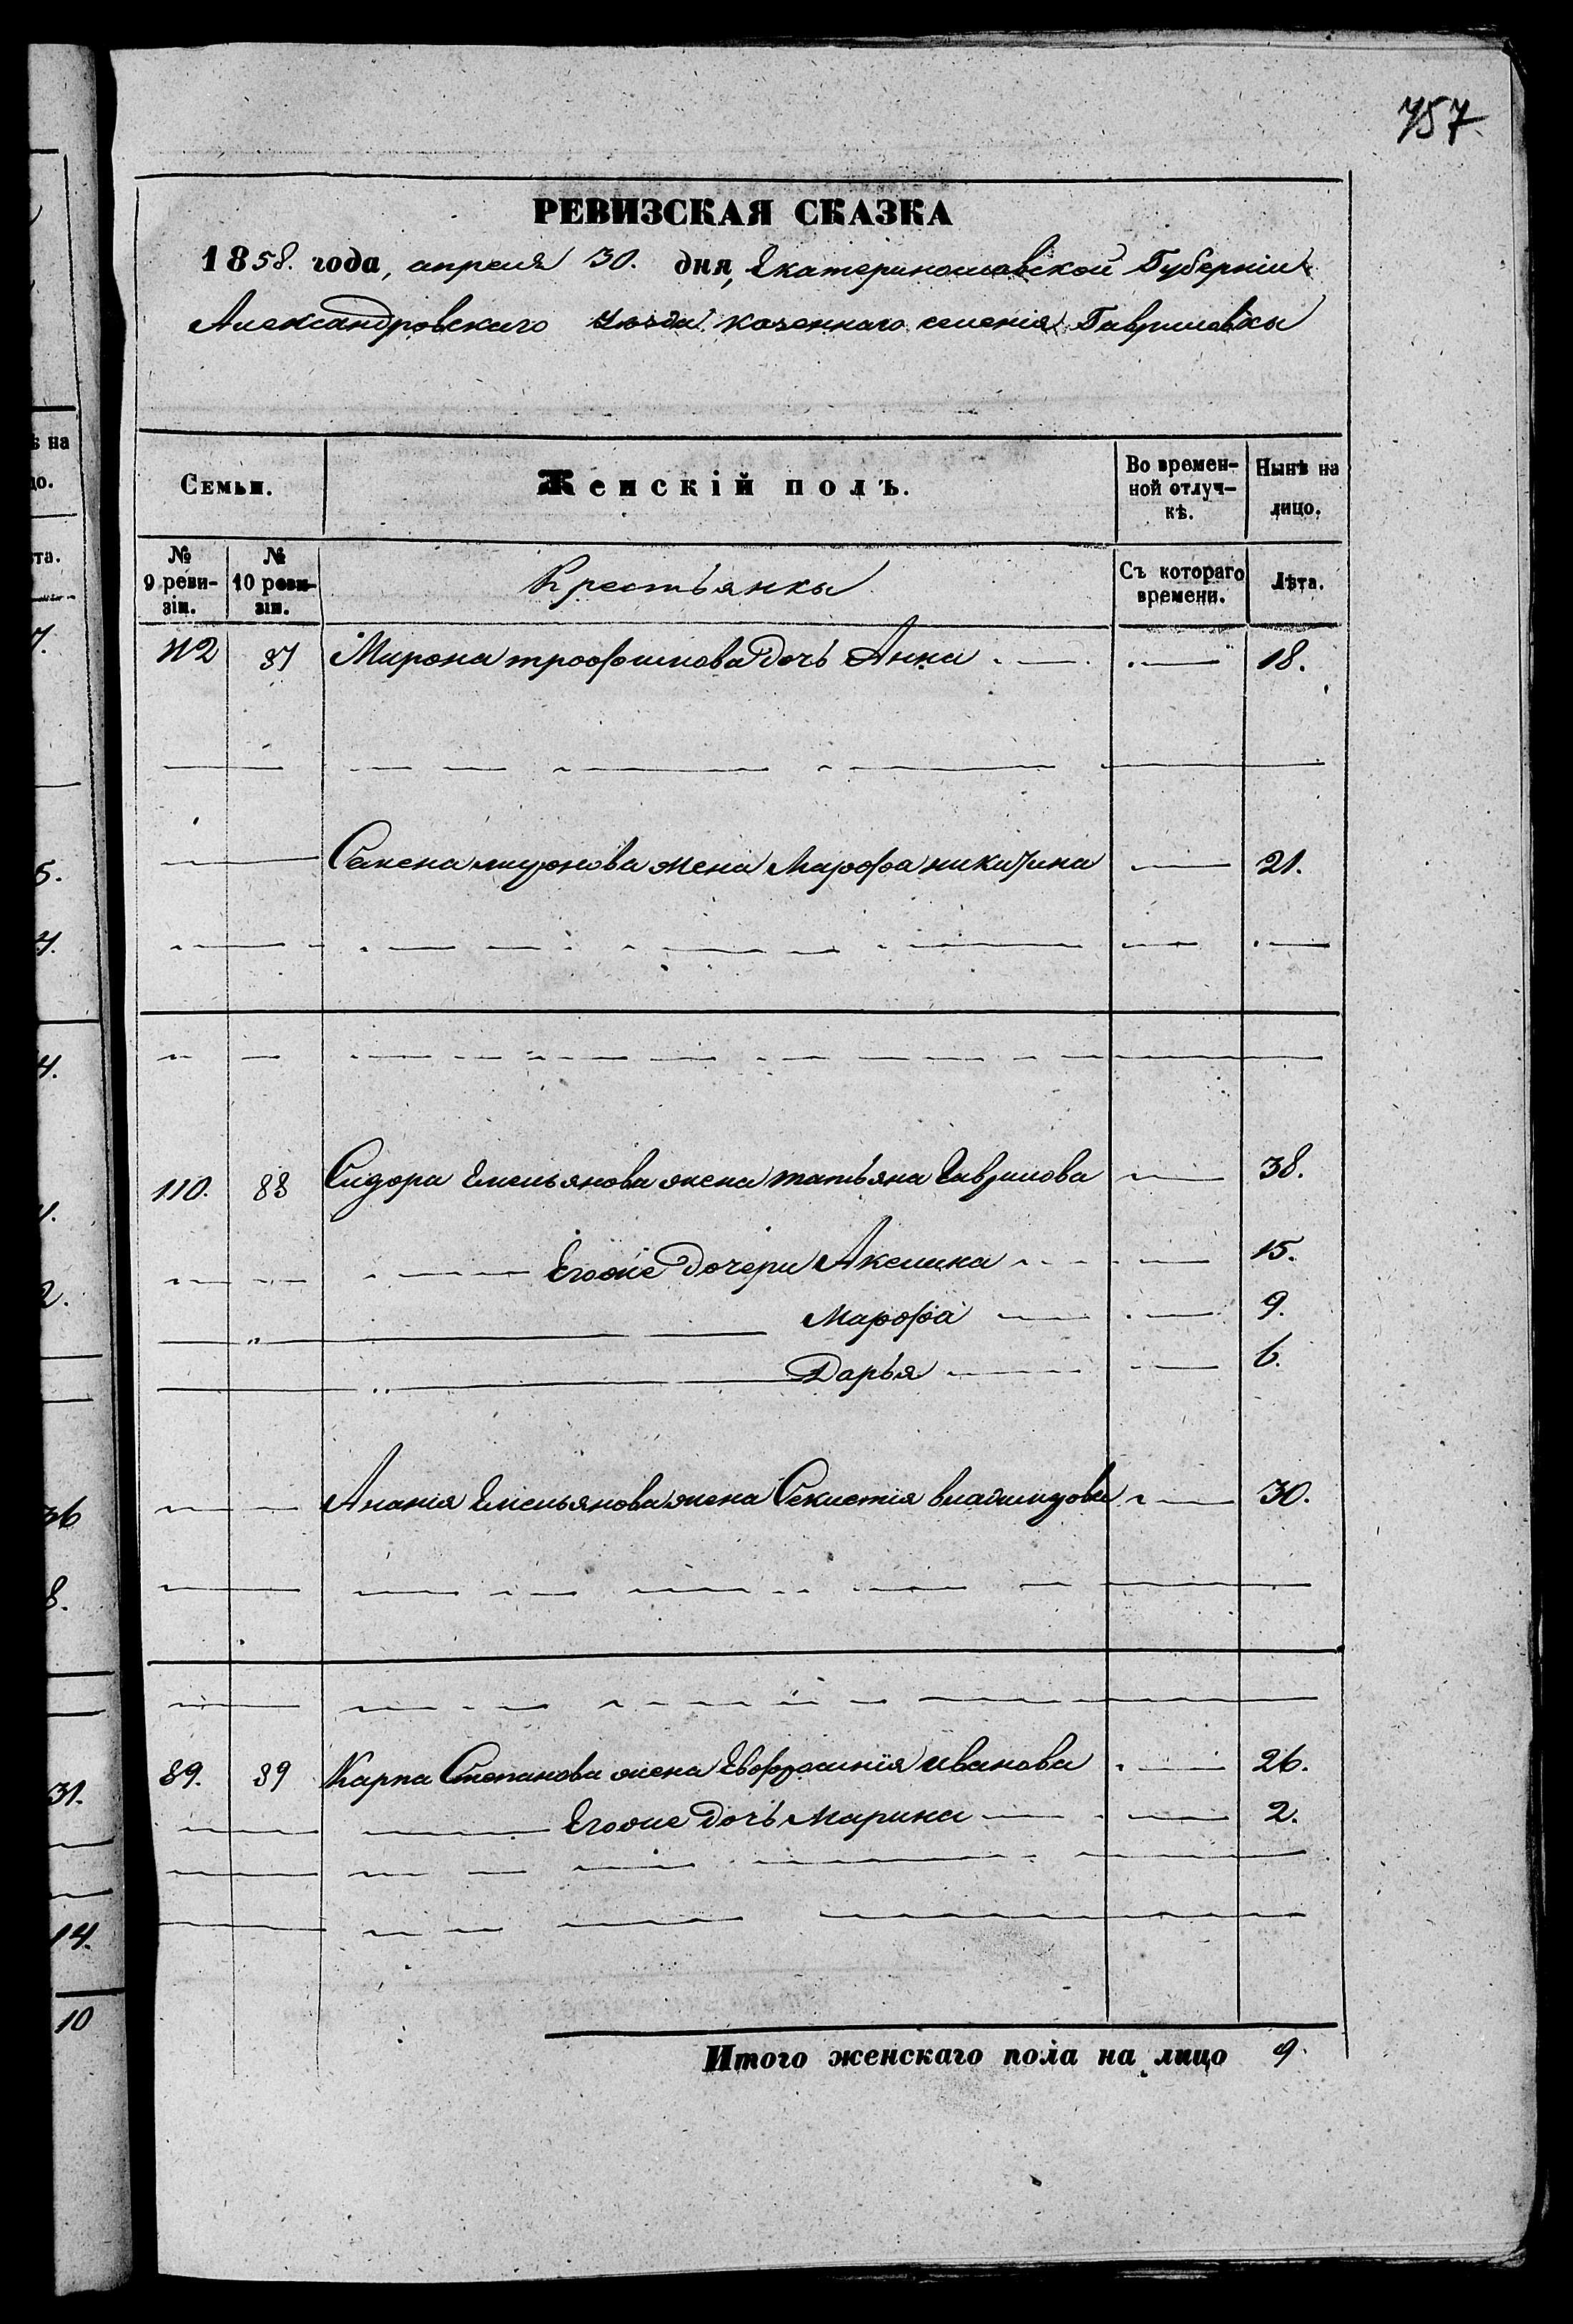 757.
РЕВИЗСКАЯ СКАЗКА
1858. года, апреля 30. дня, Екатеринославской Губерніи
Александровскаго Уѣзда казеннаго селенія Гавриловки
Семьи. Женскій полъ. Во времен-ной отлуч-кѣ. Нынѣ на лицо.
№ 9 реви-зіи. № 10 реви-зіи. Крестьянки Съ котораго времени. Лѣта.
112 87 Мирона трофимова дочь Анна 18.
Семена миронова жена Марфа никитина 21.
110. 88 Сидора Емельянова жена татьяна Гаврилова 38.
Егоже дочери Аксинья 15.
Марфа 9.
Дарья 6.
Анания Емельянова жена владимирова 30.
89. 89 Карпа Степанова жена Евфросинія иванова 26.
Егоже дочь Марина 2.
Итого женскаго пола на лицо 9.
ѣ на
цо.
та.
7.
5.
4.
4.
2.
36
8.
31.
14.
10